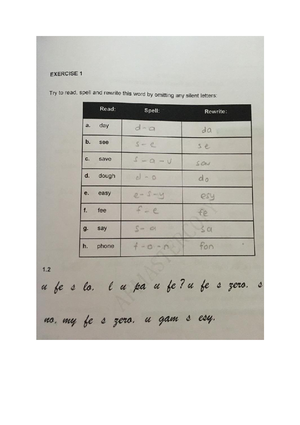 EXERCISE 1
Try to read, spell and rewrite this word by omitting any silent letters:
Read: Spell: Rewrite:
a. day d-a da
b. see s-e se
c. save s-a-v sav
d. dough d-o do
e. easy e-s-y esy
f. fee f-e fe
g. say s-a sa
h. phone f-o-n fon
1.2
u fe s lo. l u pa u fe? u fe s zero. s
no, my fe s zero. u gam s esy.